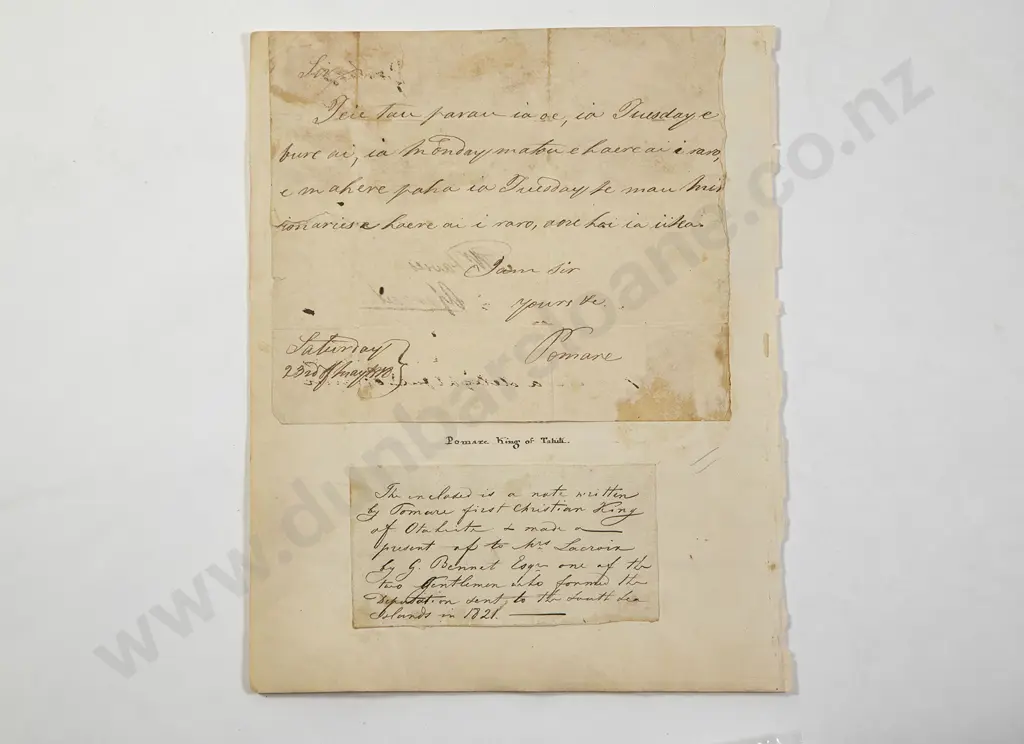 Sir
Teie tau parau ia oe, ia Tuesday e
bure ai, ia Monday matou e haere ai i raro,
e mahere paha ia Tuesday te mau Mis
sionaries e haere ai i raro, aore hoi ia iitea.
I am sir
yours &c.
Pomare
Saturday
23rd of May
Pomare King of Tahiti.
The inclosed is a note written
by Pomare first Christian King
of Otaheite & made a
present of to Mrs. Lacroix
by G. Bennet Esqr one of the
two Gentlemen who formed the
Deputation sent to the South Sea
Islands in 1821.
www.dunbarsloane.co.nz